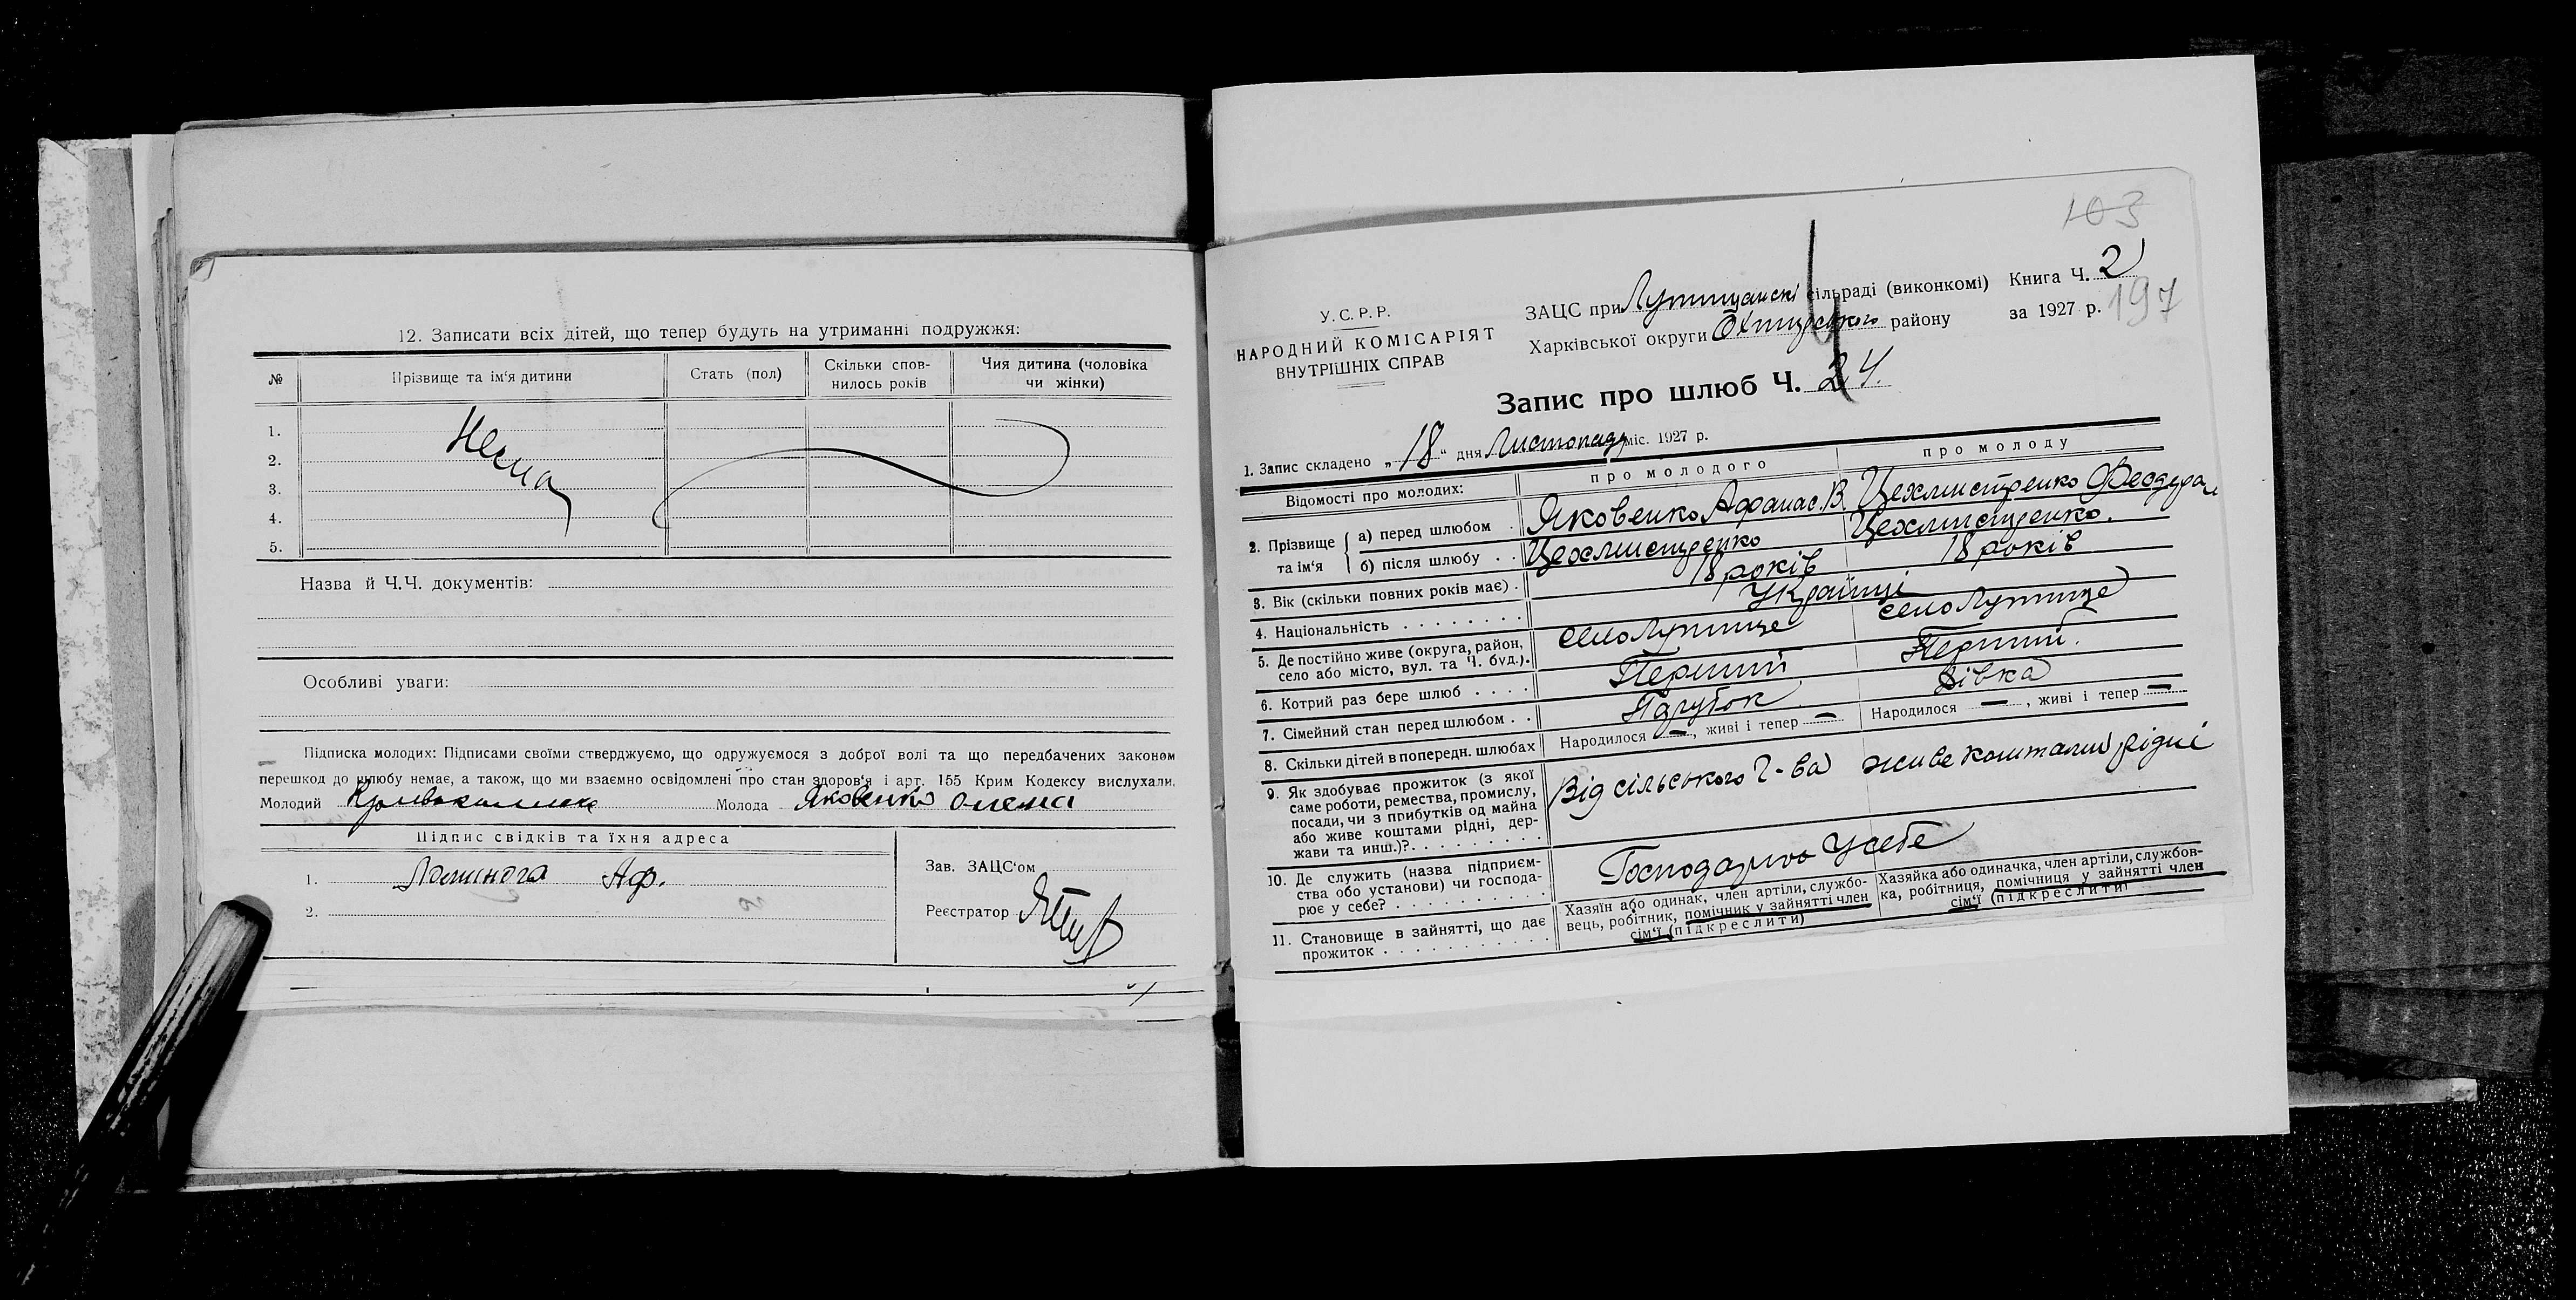 12. Записати всіх дітей, що тепер будуть на утриманні подружжя:
№ Прізвище та ім'я дитини Стать (пол) Скільки спов- Чия дитина (чоловіка
нилось років чи жінки)
1.
2. Нема
3.
4.
5.
Назва й Ч.Ч. документів:
Особливі уваги:
Підписка молодих: Підписами своїми стверджуємо, що одружуємося з доброї волі та що передбачених законом
перешкод до шлюбу немає, а також, що ми взаємно освідомлені про стан здоров'я і арт. 155 Крим Кодексу вислухали.
Молодий Молода Яковенко Олена
Підпис свідків та їхня адреса
1. Аф.
2.
Зав. ЗАЦС'ом
Реєстратор
103
У.С.Р.Р.
НАРОДНИЙ КОМІСАРІЯТ
ВНУТРІШНІХ СПРАВ
ЗАЦС при Лутищанскі сільраді (виконкомі) Книга Ч. 2
Харківської округи Охтирського району за 1927 р. 197
Запис про шлюб Ч. 24.
1. Запис складено „18" дня Листопада міс. 1927 р.
Відомості про молодих: про молодого про молоду
2. Прізвище та ім'я а) перед шлюбом Яковенко Афанас. В. Цехмистренко Феодора
б) після шлюбу Цехмистренко Цехмистренко.
3. Вік (скільки повних років має) 18 років 18 років
4. Національність Українці
5. Де постійно живе (округа, район, село Лутище село Лутище
село або місто, вул. та Ч. буд.)
6. Котрий раз бере шлюб Перший Перший.
7. Сімейний стан перед шлюбом Парубок. Дівка
8. Скільки дітей в попередн. шлюбах Народилося —, живі і тепер — Народилося —, живі і тепер —
9. Як здобуває прожиток (з якої Від сільського г-ва живе коштами рідні
саме роботи, ремества, промислу,
посади, чи з прибутків од майна
або живе коштами рідні, дер-
жави та инш.)?
10. Де служить (назва підприєм- Господарює у себе
ства або установи) чи господа-
рює у себе?
11. Становище в зайнятті, що дає
прожиток
Хазяїн або одинак, член артіли, службо-
вець, робітник, помічник у зайнятті член
сім'ї (підкреслити)
Хазяйка або одиначка, член артіли, службов-
ка, робітниця, помічниця у зайнятті член
сім'ї (підкреслити)